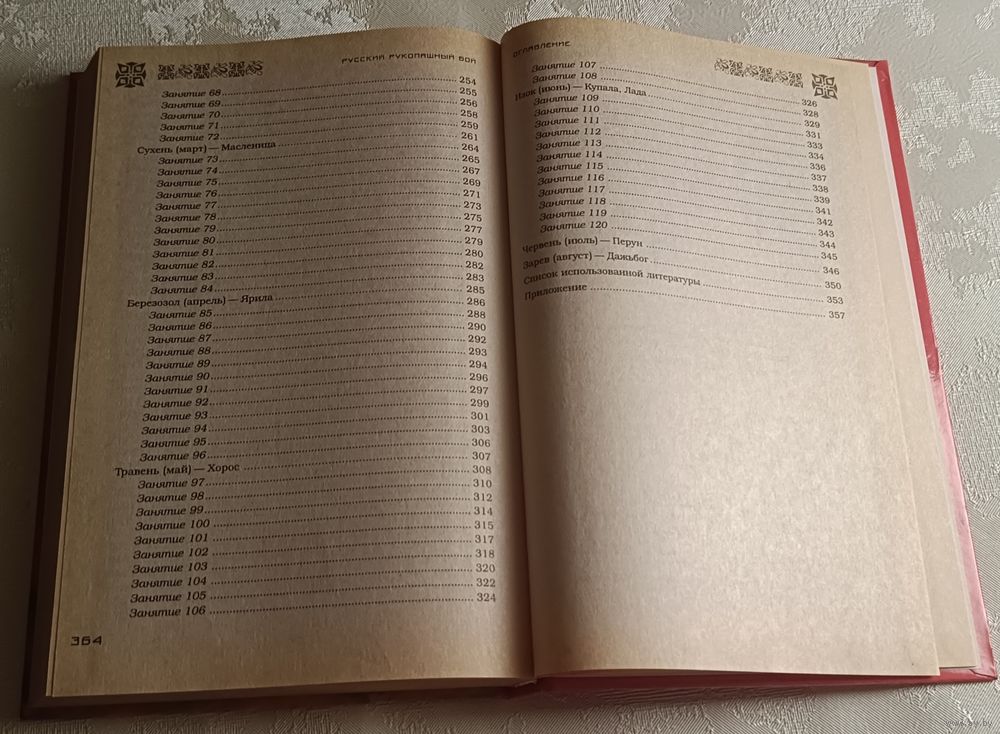 РУССКИЙ РУКОПАШНЫЙ БОЙ
Занятие 68 254
Занятие 69 255
Занятие 70 256
Занятие 71 258
Занятие 72 259
Сухень (март) — Масленица 261
Занятие 73 264
Занятие 74 265
Занятие 75 267
Занятие 76 269
Занятие 77 271
Занятие 78 273
Занятие 79 275
Занятие 80 277
Занятие 81 279
Занятие 82 280
Занятие 83 282
Занятие 84 283
Березозол (апрель) — Ярила 285
Занятие 85 286
Занятие 86 288
Занятие 87 290
Занятие 88 292
Занятие 89 293
Занятие 90 294
Занятие 91 296
Занятие 92 297
Занятие 93 299
Занятие 94 301
Занятие 95 303
Занятие 96 306
Травень (май) — Хорос 307
Занятие 97 308
Занятие 98 310
Занятие 99 312
Занятие 100 314
Занятие 101 315
Занятие 102 317
Занятие 103 318
Занятие 104 320
Занятие 105 322
Занятие 106 324
364
ОГЛАВЛЕНИЕ
Занятие 107 326
Занятие 108 328
Изок (июнь) — Купала, Лада 329
Занятие 109 331
Занятие 110 333
Занятие 111 334
Занятие 112 336
Занятие 113 337
Занятие 114 338
Занятие 115 339
Занятие 116 341
Занятие 117 342
Занятие 118 343
Занятие 119 344
Занятие 120 345
Червень (июль) — Перун 346
Зарев (август) — Дажьбог 350
Список использованной литературы 353
Приложение 357